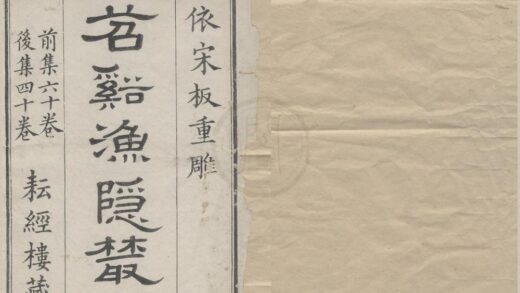 依宋板重雕
苕谿漁隱叢
前集六十卷
後集四十卷
耘經樓藏